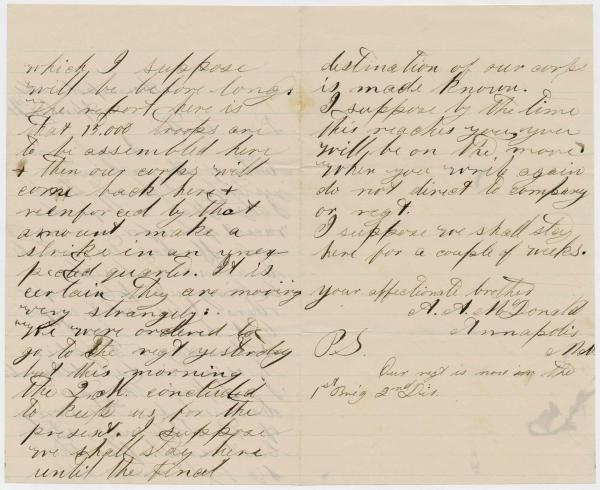 which I suppose
will be before long.
The report here is
that 15.000 troops are
to be assembled here
+ then our corps will
come back here +
reenforced by that
amount make a
strike in an unex-
pected quarter. It is
certain they are moving
very strangely.
We were ordered to
go to the regt yesterday
but this morning
the Q.M. concluded
to keep us for the
present. I suppose
we shall stay here
until the final
destination of our corps
is made known.
I suppose by the time
this reaches you, you
will be on the move.
When you write again
do not direct to company
or regt.
I suppose we shall stay
here for a couple of weeks.
Your affectionate brother
A. A. McDonald
Annapolis
Md.
P.S.
Our regt is now in the
1st Brig 2nd Div.